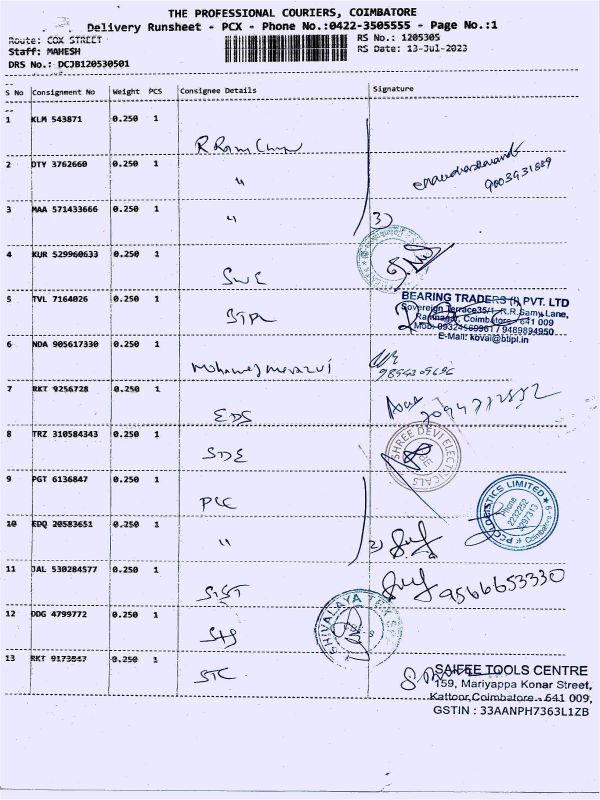 THE PROFESSIONAL COURIERS, COIMBATORE
Delivery Runsheet - PCX - Phone No.:0422-3505555 - Page No.:1
Route: COX STREET
RS No.: 1205305
Staff: MAHESH
RS Date: 13-Jul-2023
DRS No.: DCJB120530501
S No Consignment No Weight PCS Consignee Details Signature
1 KLM 543871 0.250 1
2 DTY 3762660 0.250 1 "
9003931889
3 MAA 571433666 0.250 1 " 3)
4 KUR 529960633 0.250 1
5 TVL 7164026 0.250 1 BTPL
BEARING TRADERS (I) PVT. LTD
Sovereign Terrace35/1, R.R.Samy Lane,
Ramnagar, Coimbatore - 641 009
Mob: 09324560961 / 9489894950
E-Mail: kovai@btipl.in
6 NDA 905617330 0.250 1
7 RKT 9256728 0.250 1 EDS
8 TRZ 310584343 0.250 1 SDE
SHREE DEVI ELECTRICALS
9 PGT 6136847 0.250 1 PCC
PCC LOGISTICS LIMITED
Phone
2232252
3297313
Coimbatore - 9
10 EDQ 20583651 0.250 1 " 2)
11 JAL 530284577 0.250 1 9566653330
12 DDG 4799772 0.250 1
SHIVALAYA TEX
13 RKT 9173847 0.250 1 STC
SAIFEE TOOLS CENTRE
159, Mariyappa Konar Street,
Kattoor,Coimbatore - 641 009,
GSTIN : 33AANPH7363L1ZB